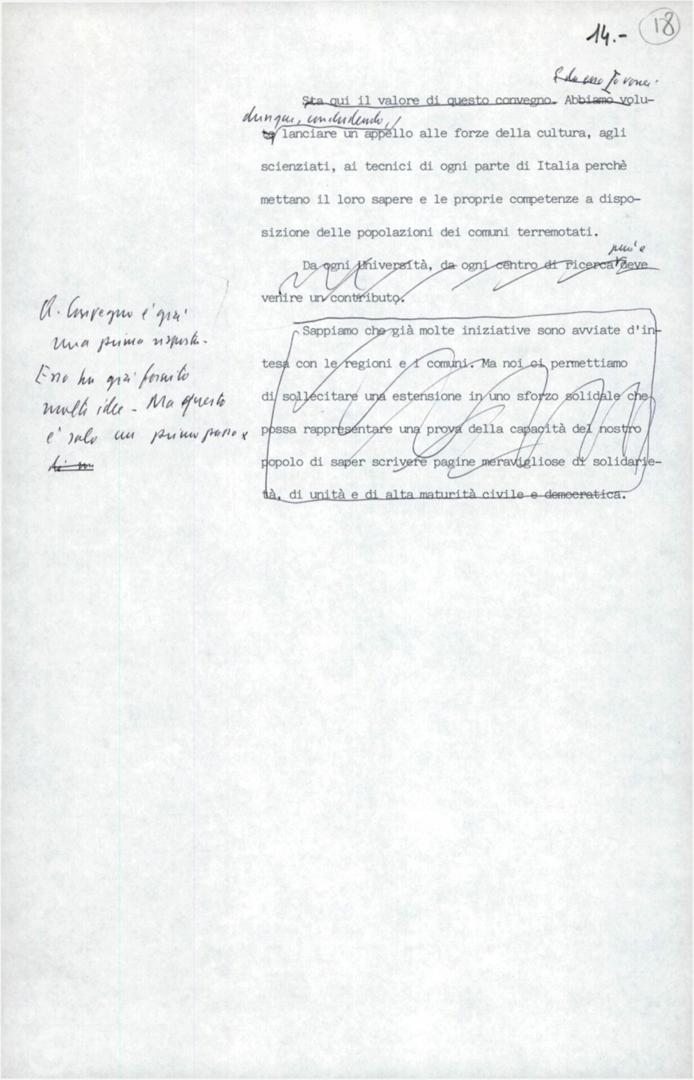 14.-
18
Sta qui il valore di questo convegno. Abbiamo volu-
dunque, concludendo,
lanciare un appello alle forze della cultura, agli
scienziati, ai tecnici di ogni parte di Italia perchè
mettano il loro sapere e le proprie competenze a dispo-
sizione delle popolazioni dei comuni terremotati.
può e
Da ogni Università, da ogni centro di ricerca deve
venire un contributo.
Sappiamo che già molte iniziative sono avviate d'in-
tesa con le regioni e i comuni. Ma noi ci permettiamo
di sollecitare una estensione in uno sforzo solidale che
possa rappresentare una prova della capacità del nostro
popolo di saper scrivere pagine meravigliose di solidarie-
tà, di unità e di alta maturità civile e democratica.
Il Convegno è già
una prima risposta.
Esso ha già fornito
molte idee - Ma questo
è solo un primo passo